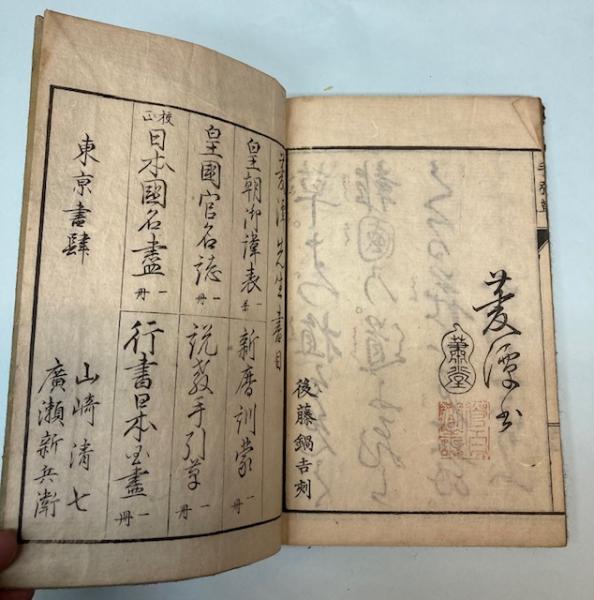 菱潭書
蕭堂
後藤鍋吉刻
菱潭先生書目
皇朝御諱表 一
新暦訓蒙 一冊
皇國官名誌 一冊
説教手引草 一冊
校正 日本國名盡 一冊
行書日本国盡 一冊
東亰書肆
山崎清七
廣瀬新兵衛